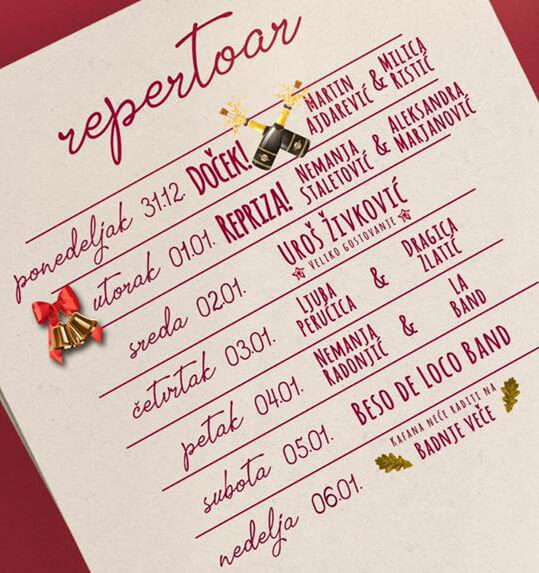 repertoar
ponedeljak 31.12. DOČEK! MARTIN AJDAREVIĆ & MILICA RISTIĆ
utorak 01.01. REPRIZA! NEMANJA STALETOVIĆ & ALEKSANDRA MARJANOVIĆ
sreda 02.01. UROŠ ŽIVKOVIĆ
VELIKO GOSTOVANJE
četvrtak 03.01. LJUBA PERUČICA & DRAGICA ZLATIĆ
petak 04.01. NEMANJA RADONJIĆ & LA BAND
subota 05.01. BESO DE LOCO BAND
nedelja 06.01. KAFANA NEĆE RADITI NA
BADNJE VEČE